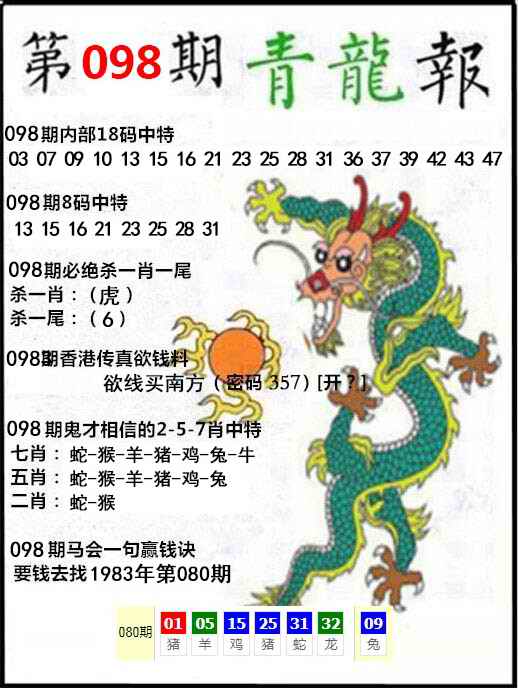 第098期青龍報
098期内部18码中特
03 07 09 10 13 15 16 21 23 25 28 31 36 37 39 42 43 47
098期8码中特
13 15 16 21 23 25 28 31
098期必绝杀一肖一尾
杀一肖：（虎）
杀一尾：（6）
098期香港传真欲钱料
欲线买南方（密码 357）[开？]
098期鬼才相信的2-5-7肖中特
七肖：蛇-猴-羊-猪-鸡-兔-牛
五肖：蛇-猴-羊-猪-鸡-兔
二肖：蛇-猴
098期马会一句赢钱诀
要钱去找1983年第080期
080期 01 05 15 25 31 32 09
猪 羊 鸡 猪 蛇 龙 兔